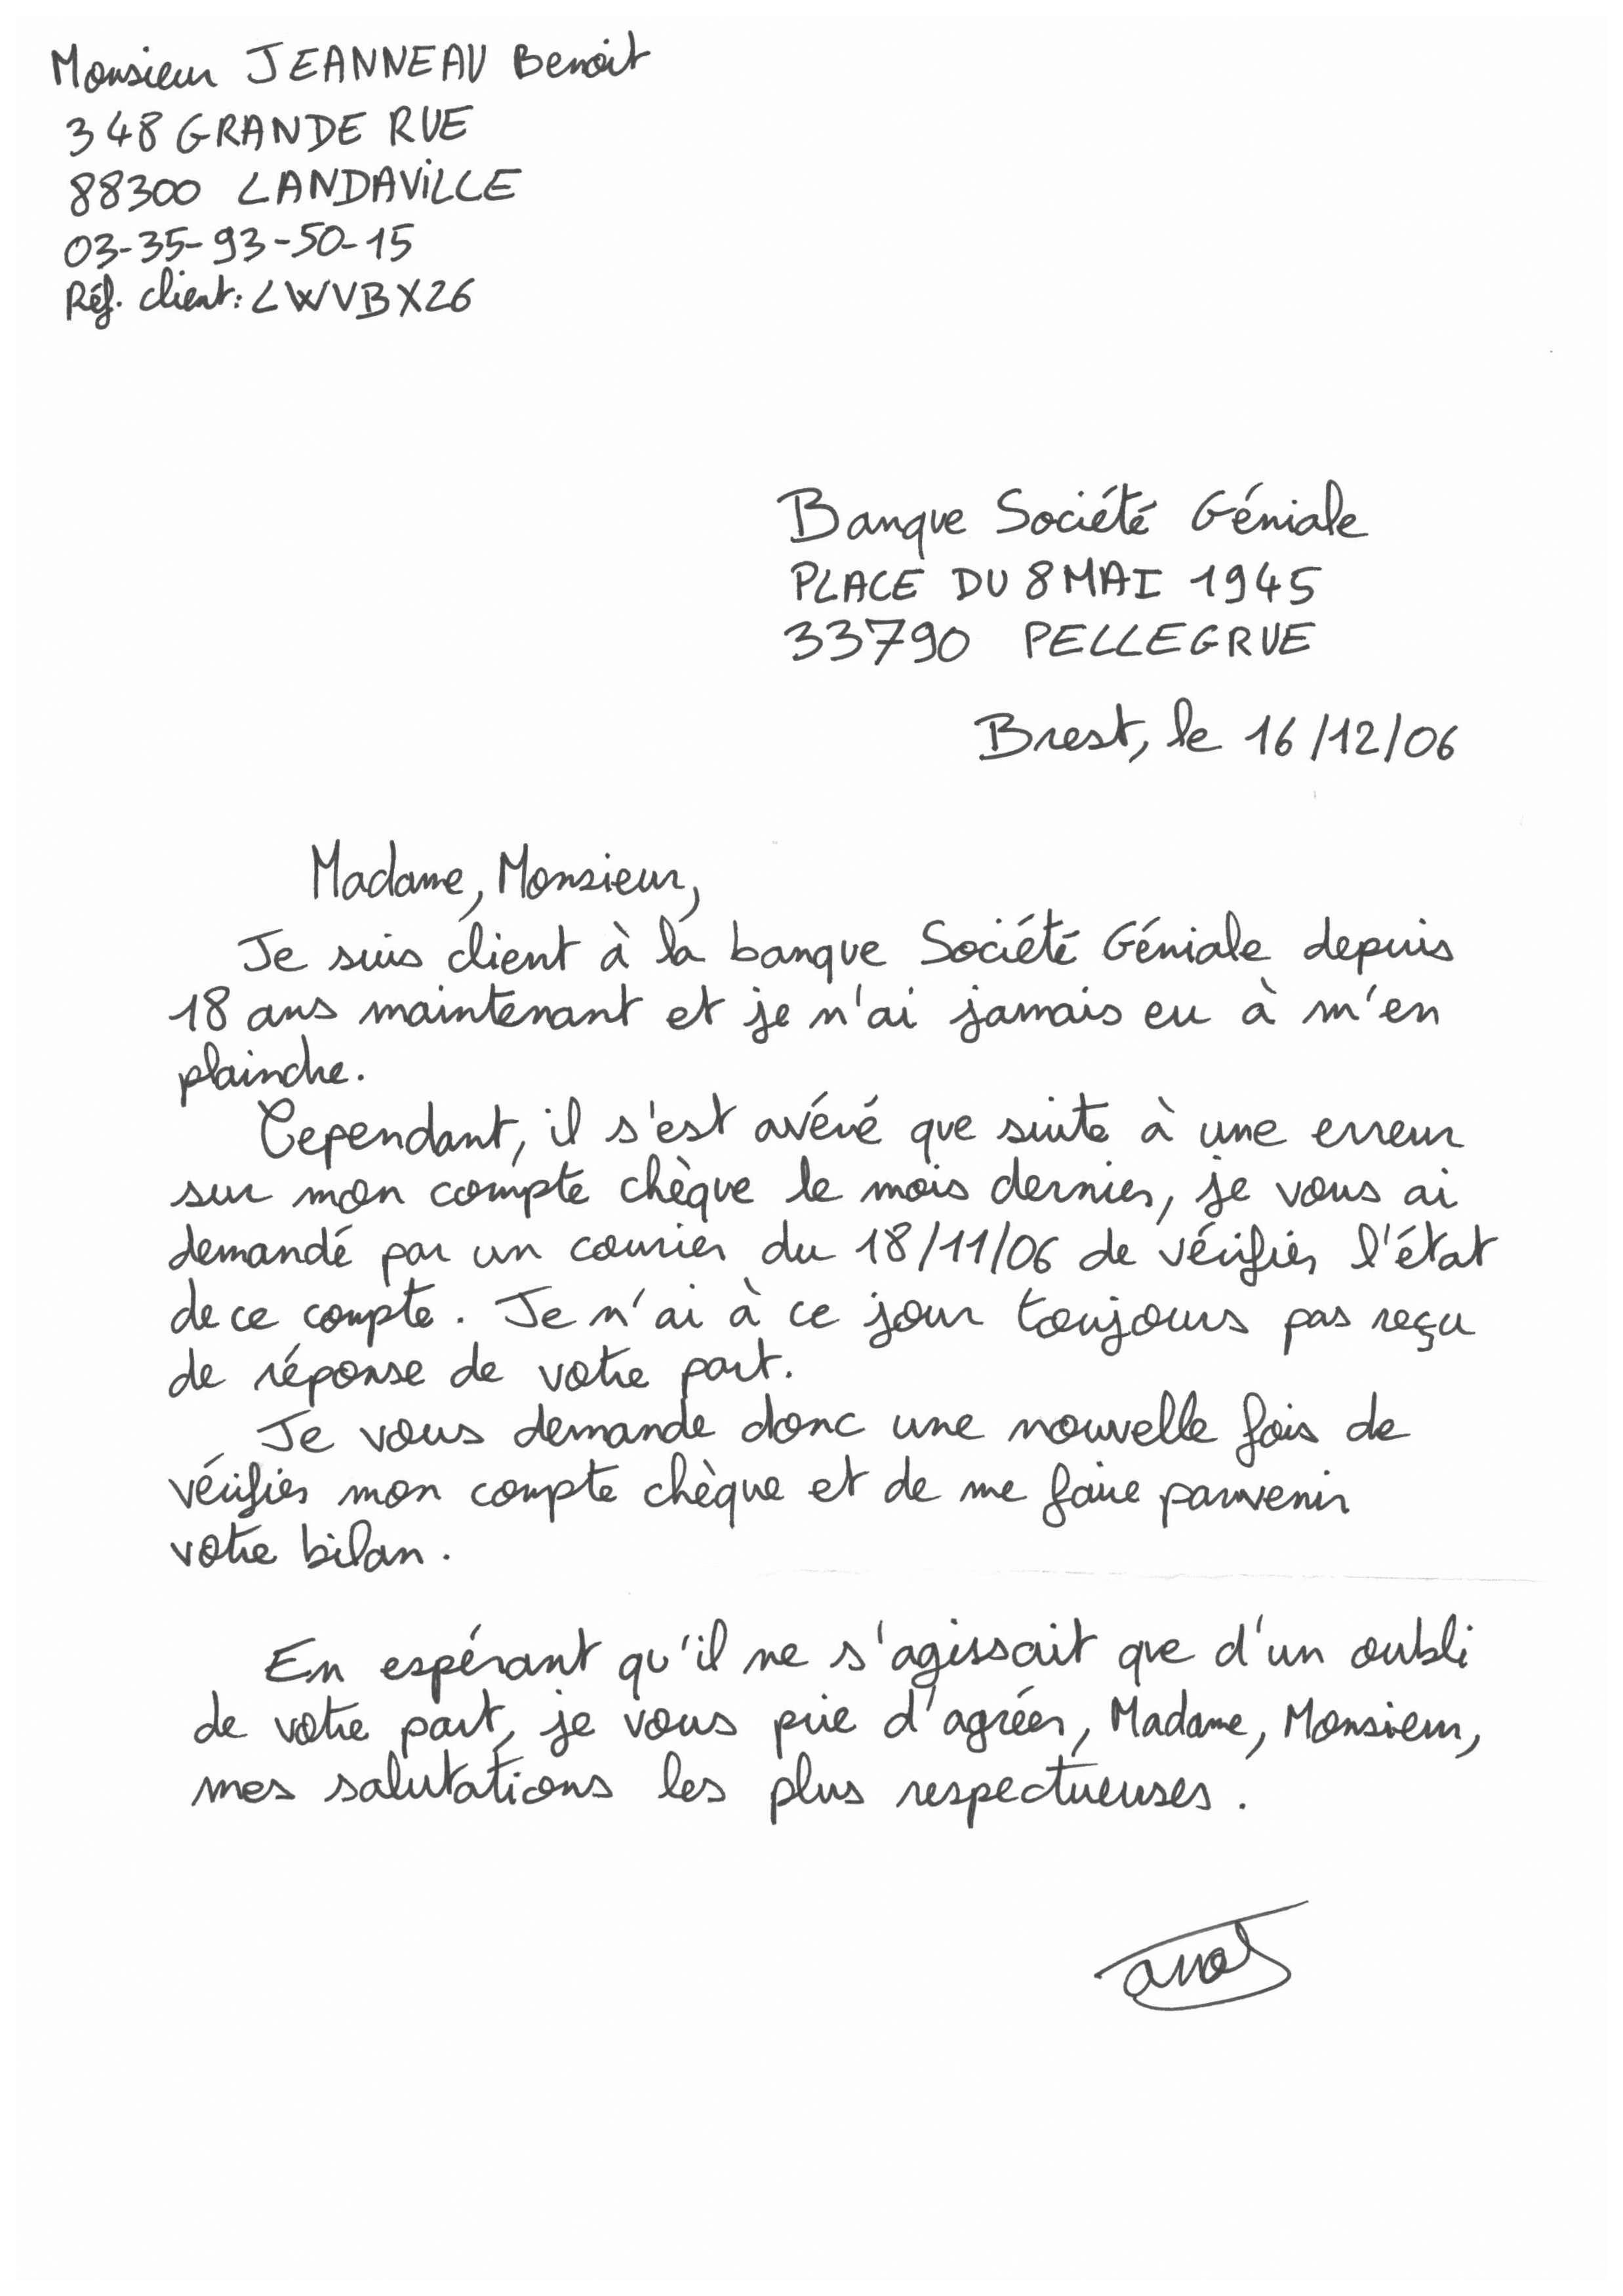 Monsieur JEANNEAU Benoit
348 GRANDE RUE
88300 LANDAVILLE
03-35-93-50-15
Réf. client: LWVBX26
Banque Société Géniale
PLACE DU 8 MAI 1945
33790 PELLEGRUE
Brest, le 16/12/06
Madame, Monsieur,
Je suis client à la banque Société Géniale depuis
18 ans maintenant et je n'ai jamais eu à m'en
plaindre.
Cependant, il s'est avéré que suite à une erreur
sur mon compte chèque le mois dernier, je vous ai
demandé par un courrier du 18/11/06 de vérifier l'état
de ce compte. Je n'ai à ce jour toujours pas reçu
de réponse de votre part.
Je vous demande donc une nouvelle fois de
vérifier mon compte chèque et de me faire parvenir
votre bilan.
En espérant qu'il ne s'agissait que d'un oubli
de votre part, je vous prie d'agréer, Madame, Monsieur,
mes salutations les plus respectueuses.